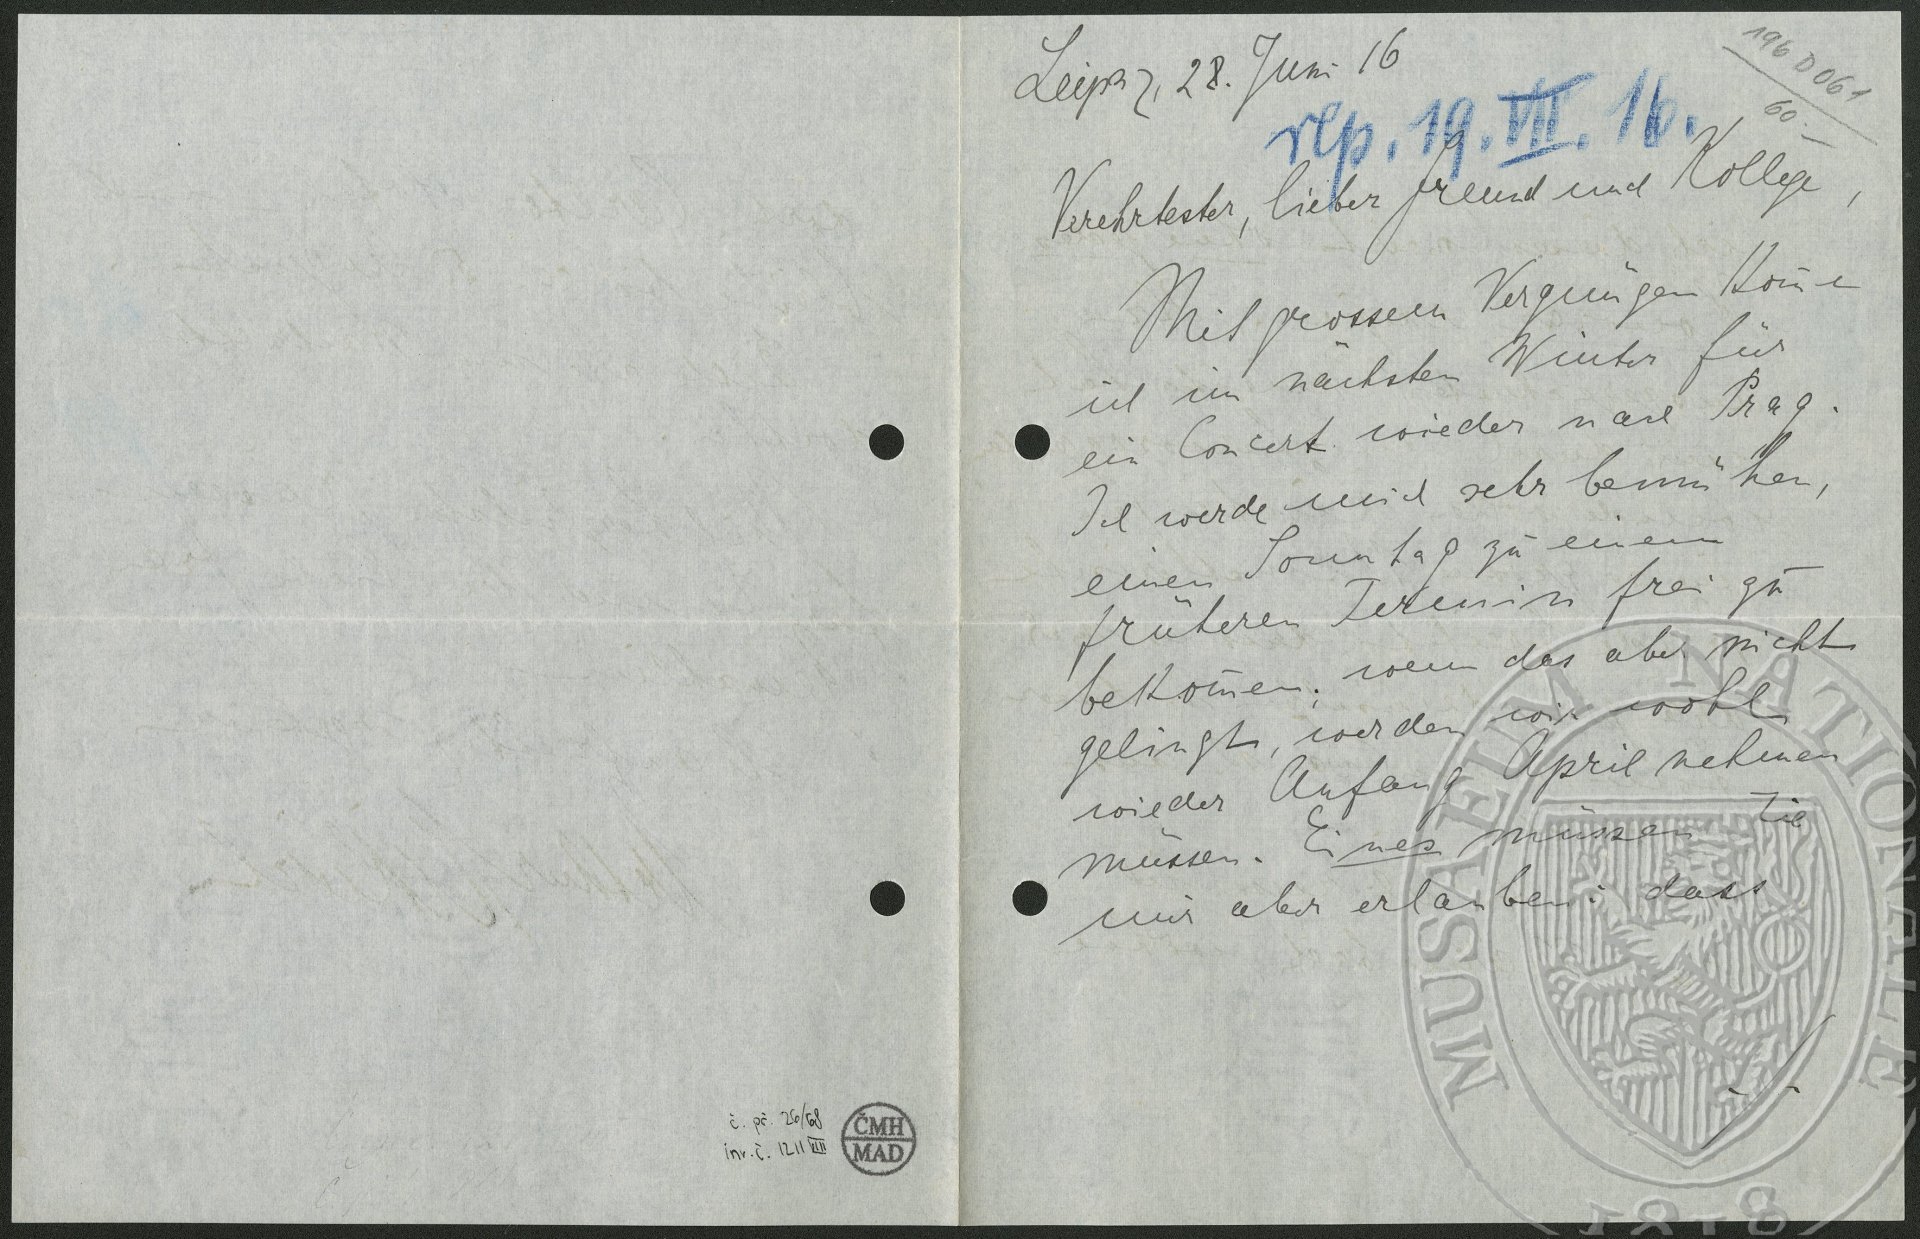 č. př. 26/68
inv. č. 1211 VIII
ČMH
MAD
196 D 061
60.—
Leipzig, 28. Juni 16
rep. 19. VII. 16.
Verehrtester, lieber Freund und Kollege,
Mit grossem Vergnügen kom̄e
ich im nächsten Winter für
ein Concert wieder nach Prag.
Ich werde mich sehr bemühen,
einen Sonntag zu einem
früheren Termin frei zu
bekom̄en; wenn das aber nicht
gelingt, werden wir wohl
wieder Anfang April nehmen
müssen. Eines müssen Sie
mir aber erlauben: dass
MUSAEUM NATIONALE
1818